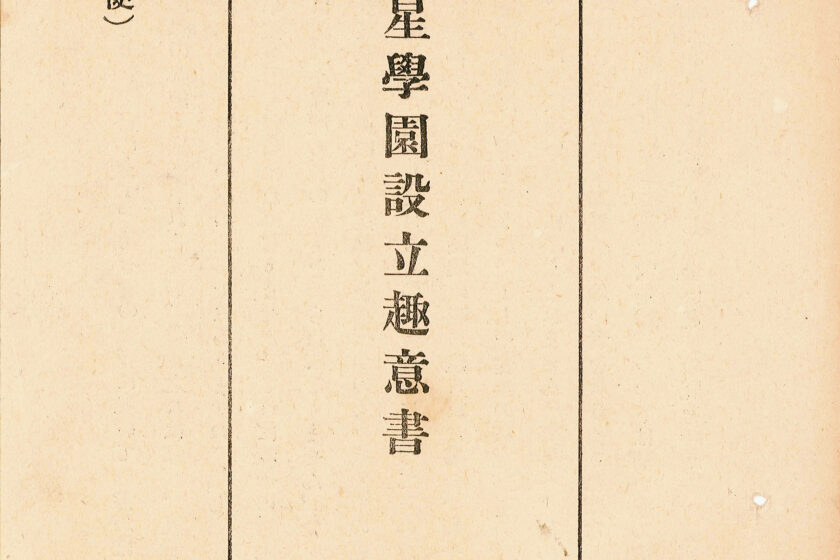 星學園設立趣意書
)